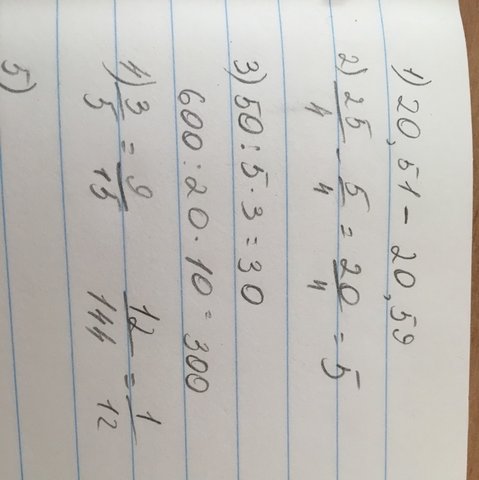 1) 20,51 - 20,59
2) 25/4 - 5/4 = 20/4 = 5
3) 50:5·3=30
600:20·10=300
4) 3/5 = 9/15 12/144 = 1/12
5)